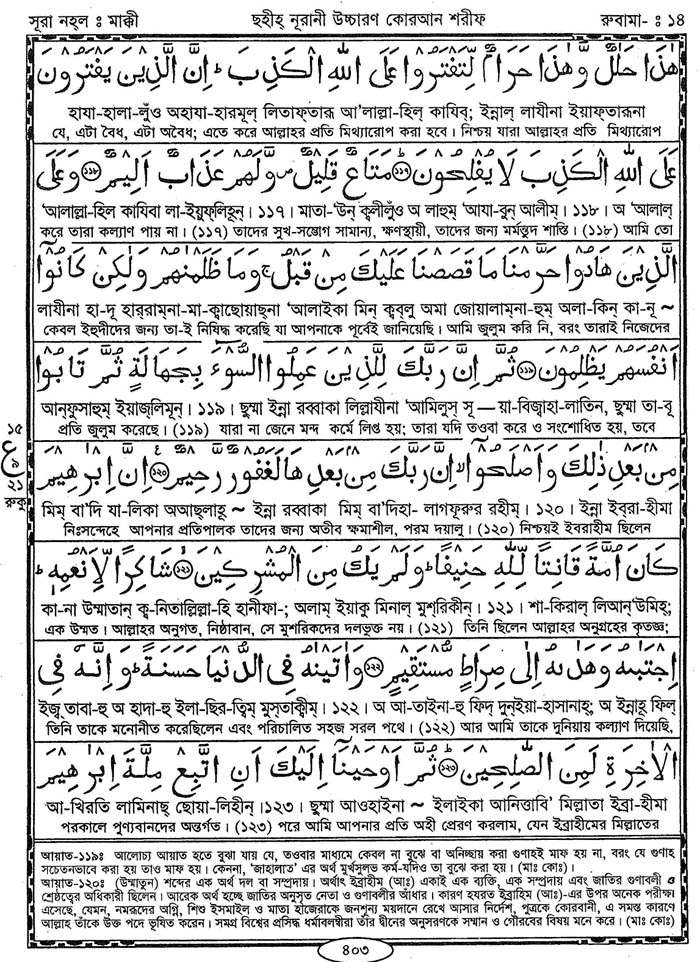 সূরা নহ্‌ল ঃ মাক্কী ছহীহ্ নূরানী উচ্চারণ কোরআন শরীফ রুবামা- ঃ ১৪
هٰذَا حَلٰلٌ وَّهٰذَا حَرَامٌ لِّتَفْتَرُوْا عَلَى اللّٰهِ الْكَذِبَ ؕ اِنَّ الَّذِيْنَ يَفْتَرُوْنَ
হাযা-হালা-লুঁও অহাযা-হারমূল্ লিতাফ্‌তারূ আ'লাল্লা-হিল্ কাযিব; ইন্নাল্ লাযীনা ইয়াফ্‌তারূনা
যে, এটা বৈধ, এটা অবৈধ; এতে করে আল্লাহর প্রতি মিথ্যারোপ করা হবে। নিশ্চয় যারা আল্লাহর প্রতি মিথ্যারোপ
عَلَى اللّٰهِ الْكَذِبَ لَا يُفْلِحُوْنَ ؕ۝۱۱۷ مَتَاعٌ قَلِيْلٌ وَّلَهُمْ عَذَابٌ اَلِيْمٌ ۝۱۱۸ وَعَلَى
'আলাল্লা-হিল কাযিবা লা-ইয়ুফ্‌লিহূন্। ১১৭। মাতা-'উন্ ক্বলীলুঁও অ লাহুম্ 'আযা-বুন্ আলীম্। ১১৮। অ 'আলাল্
করে তারা কল্যাণ পায় না। (১১৭) তাদের সুখ-সম্ভোগ সামান্য, ক্ষণস্থায়ী, তাদের জন্য মর্মন্তুদ শাস্তি। (১১৮) আমি তো
الَّذِيْنَ هَادُوْا حَرَّمْنَا مَا قَصَصْنَا عَلَيْكَ مِنْ قَبْلُ ۚ وَمَا ظَلَمْنٰهُمْ وَلٰكِنْ كَانُوْٓا
লাযীনা হা-দূ হার্‌রাম্‌না-মা-ক্বাছোয়াছ্‌না 'আলাইকা মিন্ ক্বব্‌লু অমা জোয়ালাম্‌না-হুম্ অলা-কিন্ কা-নূ ~
কেবল ইহুদীদের জন্য তা-ই নিষিদ্ধ করেছি যা আপনাকে পূর্বেই জানিয়েছি। আমি জুলুম করি নি, বরং তারাই নিজেদের
اَنْفُسَهُمْ يَظْلِمُوْنَ ۝۱۱۹ ثُمَّ اِنَّ رَبَّكَ لِلَّذِيْنَ عَمِلُوا السُّوْٓءَ بِجَهَالَةٍ ثُمَّ تَابُوْا
আন্‌ফুসাহুম্ ইয়াজ্‌লিমূন্। ১১৯। ছুম্মা ইন্না রব্বাকা লিল্লাযীনা 'আমিলুস্ সূ — য়া-বিজ্বাহা-লাতিন, ছুম্মা তা-বূ
প্রতি জুলুম করেছে। (১১৯) যারা না জেনে মন্দ কর্মে লিপ্ত হয়; তারা যদি তওবা করে ও সংশোধিত হয়, তবে
১৫
ع
৯
২১
রুকু
مِنْ بَعْدِ ذٰلِكَ وَاَصْلَحُوْٓا ۙ اِنَّ رَبَّكَ مِنْ بَعْدِهَا لَغَفُوْرٌ رَّحِيْمٌ ۝۱۲۰ اِنَّ اِبْرٰهِيْمَ
মিম্ বা'দি যা-লিকা অআছ্‌লাহূ ~ ইন্না রব্বাকা মিম্ বা'দিহা- লাগফূরুর রহীম্। ১২০। ইন্না ইব্‌রা-হীমা
নিঃসন্দেহে আপনার প্রতিপালক তাদের জন্য অতীব ক্ষমাশীল, পরম দয়ালু। (১২০) নিশ্চয়ই ইবরাহীম ছিলেন
كَانَ اُمَّةً قَانِتًا لِّلّٰهِ حَنِيْفًا ؕ وَلَمْ يَكُ مِنَ الْمُشْرِكِيْنَ ۝۱۲۱ شَاكِرًا لِّاَنْعُمِهٖ ؕ
কা-না উম্মাতান্ ক্ব-নিতাল্লিল্লা-হি হানীফা-; অলাম্ ইয়াকু মিনাল্ মুশ্‌রিকীন্। ১২১। শা-কিরাল্ লিআন্'উমিহ্;
এক উম্মত। আল্লাহর অনুগত, নিষ্ঠাবান, সে মুশরিকদের দলভুক্ত নয়। (১২১) তিনি ছিলেন আল্লাহর অনুগ্রহের কৃতজ্ঞ;
اِجْتَبٰىهُ وَهَدٰىهُ اِلٰى صِرَاطٍ مُّسْتَقِيْمٍ ۝۱۲۲ وَاٰتَيْنٰهُ فِى الدُّنْيَا حَسَنَةً ؕ وَاِنَّهٗ فِى
ইজ্ব্ তাবা-হু অ হাদা-হু ইলা-ছির-ত্বিম্ মুস্‌তাক্বীম্। ১২২। অ আ-তাইনা-হু ফিদ্ দুন্‌ইয়া-হাসানাহ্; অ ইন্নাহূ ফিল্
তিনি তাকে মনোনীত করেছিলেন এবং পরিচালিত সহজ সরল পথে। (১২২) আর আমি তাকে দুনিয়ায় কল্যাণ দিয়েছি,
الْاٰخِرَةِ لَمِنَ الصّٰلِحِيْنَ ؕ۝۱۲۳ ثُمَّ اَوْحَيْنَآ اِلَيْكَ اَنِ اتَّبِعْ مِلَّةَ اِبْرٰهِيْمَ
আ-খিরতি লামিনাছ্ ছোয়া-লিহীন্।১২৩। ছুম্মা আওহাইনা ~ ইলাইকা আনিত্তাবি' মিল্লাতা ইব্রা-হীমা
পরকালে পুণ্যবানদের অন্তর্গত। (১২৩) পরে আমি আপনার প্রতি অহী প্রেরণ করলাম, যেন ইব্রাহীমের মিল্লাতের
আয়াত-১১৯ঃ আলোচ্য আয়াত হতে বুঝা যায় যে, তওবার মাধ্যমে কেবল না বুঝে বা অনিচ্ছায় করা গুণাহই মাফ হয় না, বরং যে গুণাহ
সচেতনভাবে করা হয় তাও মাফ হয়। কেননা, 'জাহালাত' এর অর্থ মুর্খসুলভ কর্ম-যদিও তা বুঝে করা হয়। (মাঃ কোঃ)।
আয়াত-১২০ঃ (উম্মাতুন) শব্দের এক অর্থ দল বা সম্প্রদায়। অর্থাৎ ইব্রাহীম (আঃ) একাই এক ব্যক্তি, এক সম্প্রদায় এবং জাতির গুণাবলী ও
শ্রেষ্ঠত্বের অধিকারী ছিলেন। আরেক অর্থ হচ্ছে জাতির অনুসৃত নেতা ও গুণাবলীর আঁধার। কারণ হযরত ইব্রাহিম (আঃ)-এর উপর অনেক পরীক্ষা
এসেছে, যেমন, নমরূদের অগ্নি, শিশু ইসমাইল ও মাতা হাজেরাকে জনশূন্য ময়দানে রেখে আসার নির্দেশ, পুত্রকে কোরবানী, এ সমস্ত কারণে
আল্লাহ তাঁকে উক্ত পদে ভূষিত করেন। সমগ্র বিশ্বের প্রসিদ্ধ ধর্মাবলম্বীরা তাঁর দ্বীনের অনুসরণকে সম্মান ও গৌরবের বিষয় মনে করে। (মাঃ কোঃ)
৪০৩